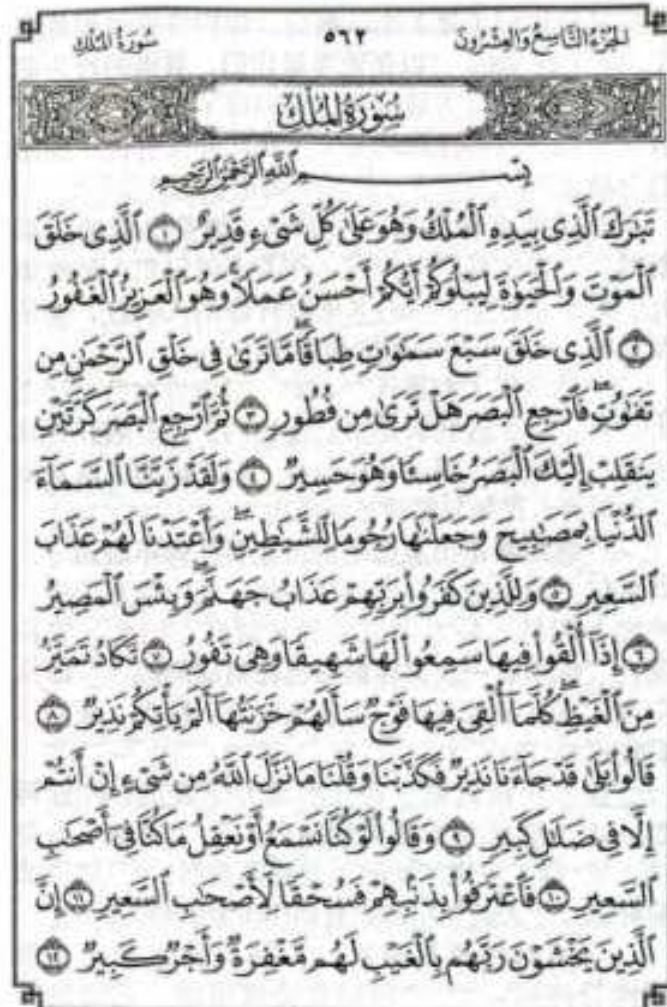 الجزء التاسع والعشرون ٥٦٢ سورة الملك
سُورَةُ المُلْكِ
بِسْمِ اللَّهِ الرَّحْمَٰنِ الرَّحِيمِ
تَبَٰرَكَ ٱلَّذِى بِيَدِهِ ٱلْمُلْكُ وَهُوَ عَلَىٰ كُلِّ شَىْءٍ قَدِيرٌ ١ ٱلَّذِى خَلَقَ
ٱلْمَوْتَ وَٱلْحَيَوٰةَ لِيَبْلُوَكُمْ أَيُّكُمْ أَحْسَنُ عَمَلًا ۚ وَهُوَ ٱلْعَزِيزُ ٱلْغَفُورُ
٢ ٱلَّذِى خَلَقَ سَبْعَ سَمَٰوَٰتٍ طِبَاقًا ۖ مَّا تَرَىٰ فِى خَلْقِ ٱلرَّحْمَٰنِ مِن
تَفَٰوُتٍ ۖ فَٱرْجِعِ ٱلْبَصَرَ هَلْ تَرَىٰ مِن فُطُورٍ ٣ ثُمَّ ٱرْجِعِ ٱلْبَصَرَ كَرَّتَيْنِ
يَنقَلِبْ إِلَيْكَ ٱلْبَصَرُ خَاسِئًا وَهُوَ حَسِيرٌ ٤ وَلَقَدْ زَيَّنَّا ٱلسَّمَآءَ
ٱلدُّنْيَا بِمَصَٰبِيحَ وَجَعَلْنَٰهَا رُجُومًا لِّلشَّيَٰطِينِ ۖ وَأَعْتَدْنَا لَهُمْ عَذَابَ
ٱلسَّعِيرِ ٥ وَلِلَّذِينَ كَفَرُوا۟ بِرَبِّهِمْ عَذَابُ جَهَنَّمَ ۖ وَبِئْسَ ٱلْمَصِيرُ
٦ إِذَآ أُلْقُوا۟ فِيهَا سَمِعُوا۟ لَهَا شَهِيقًا وَهِىَ تَفُورُ ٧ تَكَادُ تَمَيَّزُ
مِنَ ٱلْغَيْظِ ۖ كُلَّمَآ أُلْقِىَ فِيهَا فَوْجٌ سَأَلَهُمْ خَزَنَتُهَآ أَلَمْ يَأْتِكُمْ نَذِيرٌ ٨
قَالُوا۟ بَلَىٰ قَدْ جَآءَنَا نَذِيرٌ فَكَذَّبْنَا وَقُلْنَا مَا نَزَّلَ ٱللَّهُ مِن شَىْءٍ إِنْ أَنتُمْ
إِلَّا فِى ضَلَٰلٍ كَبِيرٍ ٩ وَقَالُوا۟ لَوْ كُنَّا نَسْمَعُ أَوْ نَعْقِلُ مَا كُنَّا فِىٓ أَصْحَٰبِ
ٱلسَّعِيرِ ١٠ فَٱعْتَرَفُوا۟ بِذَنۢبِهِمْ فَسُحْقًا لِّأَصْحَٰبِ ٱلسَّعِيرِ ١١ إِنَّ
ٱلَّذِينَ يَخْشَوْنَ رَبَّهُم بِٱلْغَيْبِ لَهُم مَّغْفِرَةٌ وَأَجْرٌ كَبِيرٌ ١٢